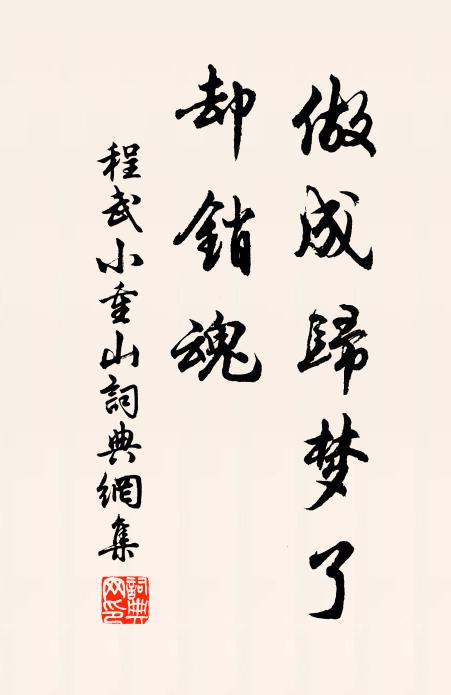 做成歸梦了
却銷魂
程武小重山詞典網集
詞典網印